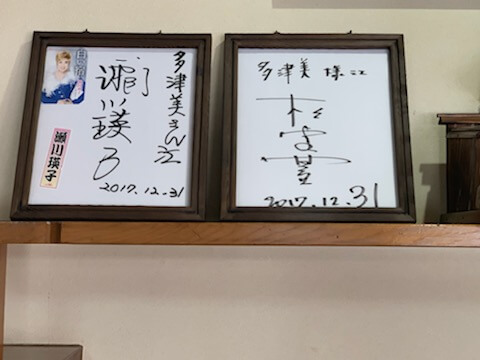 多津美さん江
瀬川瑛子
2017.12.31
瀬川瑛子
多津美様江
2017.12.31